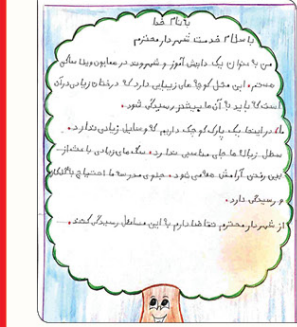 بنام خدا
با سلام خدمت شهردار محترم
من به عنوان یک دانش آموز و شهروند در همایون ویلا ساکن
هستم. این محل کوچه های زیبایی دارد که درختان زیادی در آن
است که باید به آن ها بیشتر رسیدگی شود.
ما در اینجا یک پارک کوچک داریم که وسایل زیادی ندارد.
سطل زباله ها جای مناسبی ندارد. سگ های زیادی باعث از
بین رفتن آرامش ما می شود. جلوی مدرسه ما احتیاج به
و رسیدگی دارد.
از شهردار محترم تقاضا دارم به این مسائل رسیدگی کنند.